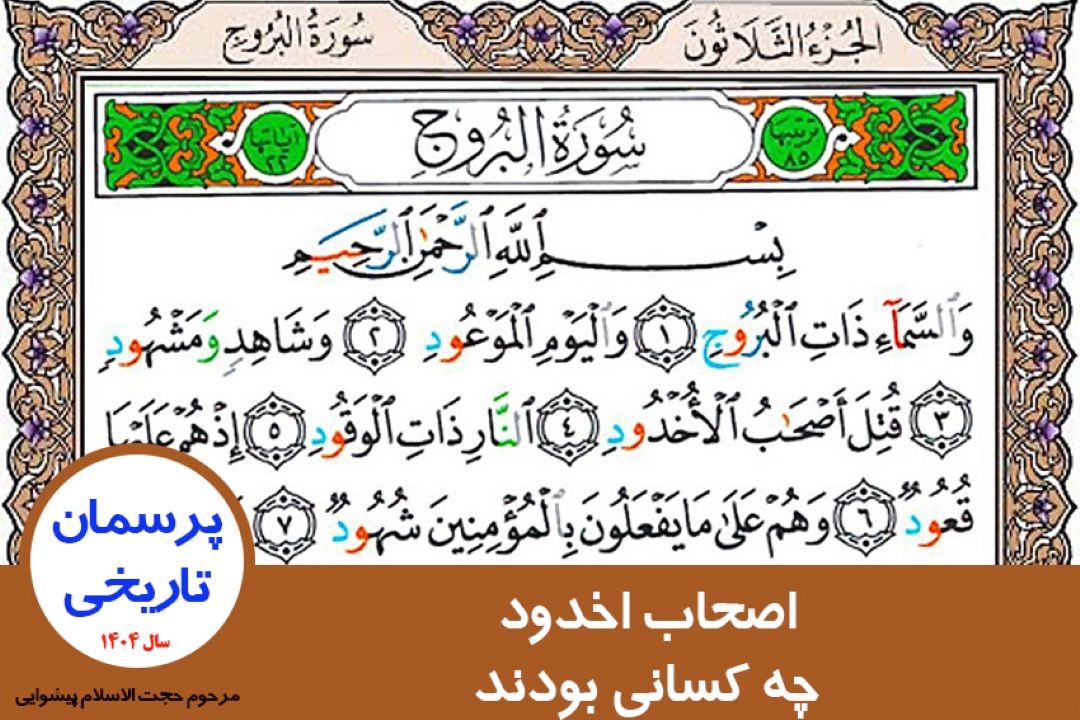 الجُزْءُ الثَّلَاثُونَ
سُورَةُ البُرُوجِ
ترتيبها
٨٥
سُورَةُ البُرُوجِ
آياتها
٢٢
بِسْمِ ٱللَّهِ ٱلرَّحْمَٰنِ ٱلرَّحِيمِ
وَٱلسَّمَآءِ ذَاتِ ٱلْبُرُوجِ ١ وَٱلْيَوْمِ ٱلْمَوْعُودِ ٢ وَشَاهِدٍ وَمَشْهُودٍ
٣ قُتِلَ أَصْحَٰبُ ٱلْأُخْدُودِ ٤ ٱلنَّارِ ذَاتِ ٱلْوَقُودِ ٥ إِذْ هُمْ عَلَيْهَا
قُعُودٌ ٦ وَهُمْ عَلَىٰ مَا يَفْعَلُونَ بِٱلْمُؤْمِنِينَ شُهُودٌ ٧
پرسمان
تاریخی
سال ۱۴۰۴
مرحوم حجت الاسلام پیشوایی
اصحاب اخدود
چه کسانی بودند